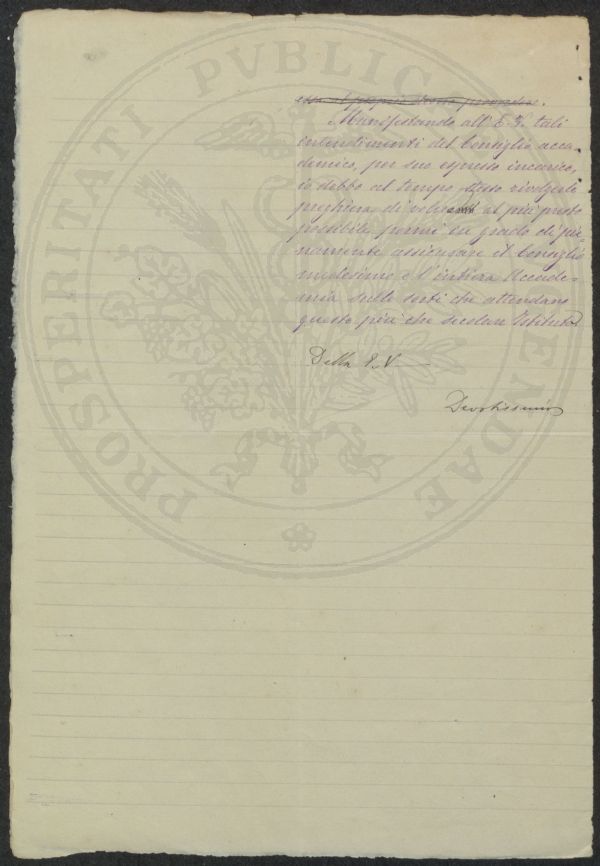 PROSPERITATI PVBLICAE AVGENDAE
Manifestando all'E. V. tali
intendimenti del Consiglio acca-
demico, per suo espresso incarico,
io debbo al tempo stesso rivolgerle
preghiera di voler al più presto
possibile pormi in grado di pie-
namente assicurare il Consiglio
medesimo e l'intiera Accade-
mia sulle sorti che attendano
questo più che secolare Istituto.
Della E. V.
Devotissimo